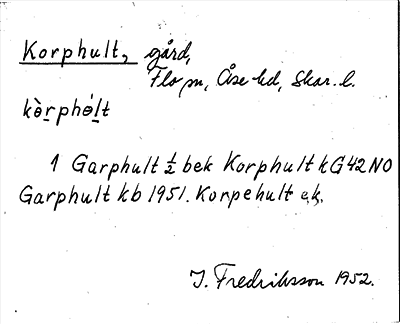 Korphult, gård,
Flo sn, Åse hd, Skar. l.
kè̱rphó̱lt
1 Garphult ½ bek Korphult kG42NO
Garphult kb 1951. Korpehult e.k.
I. Fredriksson 1952.